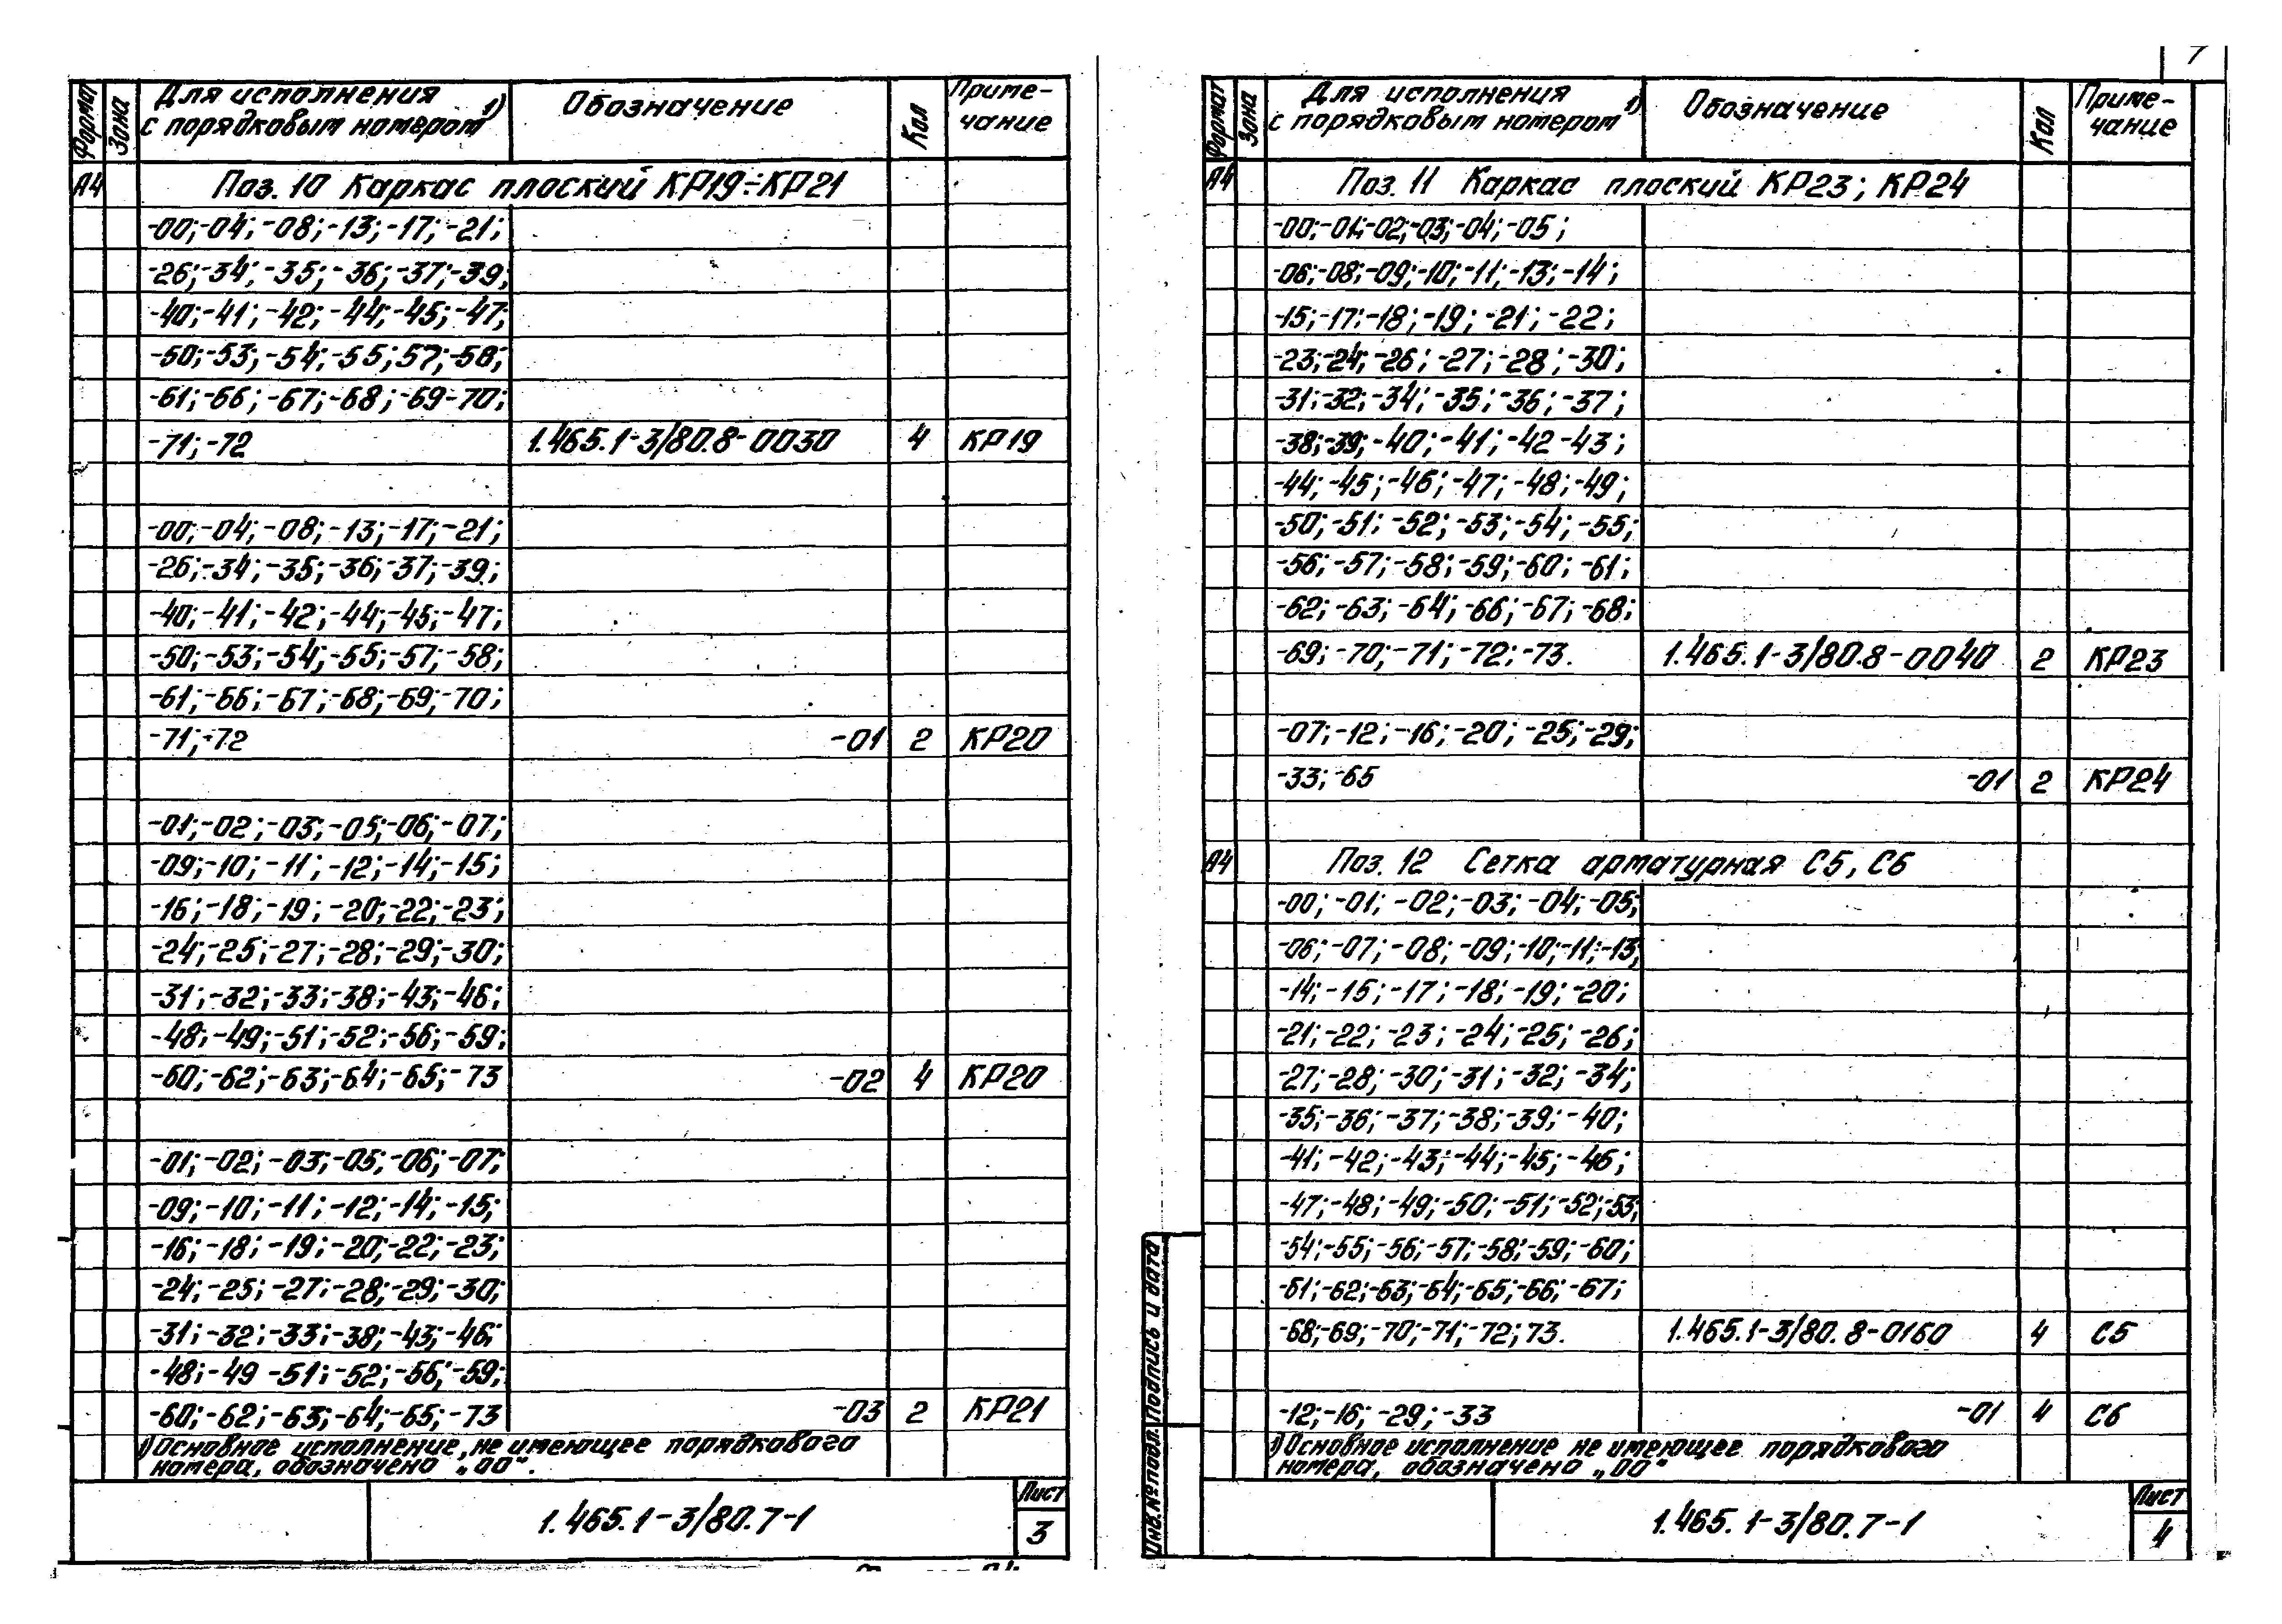 Формат Зона Для исполнения с порядковым номером 1) Обозначение Кол Приме-чание
А4 Поз. 10 Каркас плоский КР19÷КР21
-00;-04;-08;-13;-17;-21;
-26;-34;-35;-36;-37;-39;
-40;-41;-42;-44;-45;-47;
-50;-53;-54;-55;57;-58;
-61;-66;-67;-68;-69-70;
-71;-72 1.465.1-3/80.8-0030 4 КР19
-00;-04;-08;-13;-17;-21;
-26;-34;-35;-36;-37;-39;
-40;-41;-42;-44;-45;-47;
-50;-53;-54;-55;-57;-58;
-61;-66;-67;-68;-69;-70;
-71;-72 -01 2 КР20
-01;-02;-03;-05;-06;-07;
-09;-10;-11;-12;-14;-15;
-16;-18;-19;-20;-22;-23;
-24;-25;-27;-28;-29;-30;
-31;-32;-33;-38;-43;-46;
-48;-49;-51;-52;-56;-59;
-60;-62;-63;-64;-65;-73 -02 4 КР20
-01;-02;-03;-05;-06;-07;
-09;-10;-11;-12;-14;-15;
-16;-18;-19;-20;-22;-23;
-24;-25;-27;-28;-29;-30;
-31;-32;-33;-38;-43;-46;
-48;-49 -51;-52;-56;-59;
-60;-62;-63;-64;-65;-73 -03 2 КР21
1) Основное исполнение, не имеющее порядкового
номера, обозначено „00“.
1.465.1-3/80.7-1 Лист 3
7
Формат Зона Для исполнения с порядковым номером 1) Обозначение Кол Приме-чание
А4 Поз. 11 Каркас плоский КР23; КР24
-00;-01;-02;-03;-04;-05;
-06;-08;-09;-10;-11;-13;-14;
-15;-17;-18;-19;-21;-22;
-23;-24;-26;-27;-28;-30;
-31;-32;-34;-35;-36;-37;
-38;-39;-40;-41;-42-43;
-44;-45;-46;-47;-48;-49;
-50;-51;-52;-53;-54;-55;
-56;-57;-58;-59;-60;-61;
-62;-63;-64;-66;-67;-68;
-69;-70;-71;-72;-73. 1.465.1-3/80.8-0040 2 КР23
-07;-12;-16;-20;-25;-29;
-33;-65 -01 2 КР24
А4 Поз. 12 Сетка арматурная С5, С6
-00;-01;-02;-03;-04;-05;
-06;-07;-08;-09;-10;-11;-13;
-14;-15;-17;-18;-19;-20;
-21;-22;-23;-24;-25;-26;
-27;-28;-30;-31;-32;-34;
-35;-36;-37;-38;-39;-40;
-41;-42;-43;-44;-45;-46;
-47;-48;-49;-50;-51;-52;-53;
-54;-55;-56;-57;-58;-59;-60;
-61;-62;-63;-64;-65;-66;-67;
-68;-69;-70;-71;-72;73. 1.465.1-3/80.8-0160 4 С5
-12;-16;-29;-33 -01 4 С6
1) Основное исполнение не имеющее порядкового
номера, обозначено „00“
Инв.№ подл. Подпись и дата
1.465.1-3/80.7-1 Лист 4